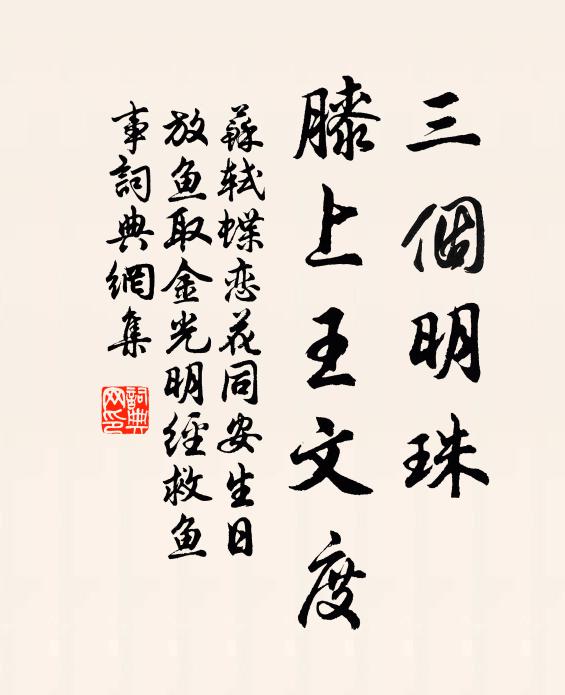 三個明珠
膝上王文度
蘇軾蝶恋花同安生日
放鱼取金光明經救鱼
事詞典網集
詞典
网印